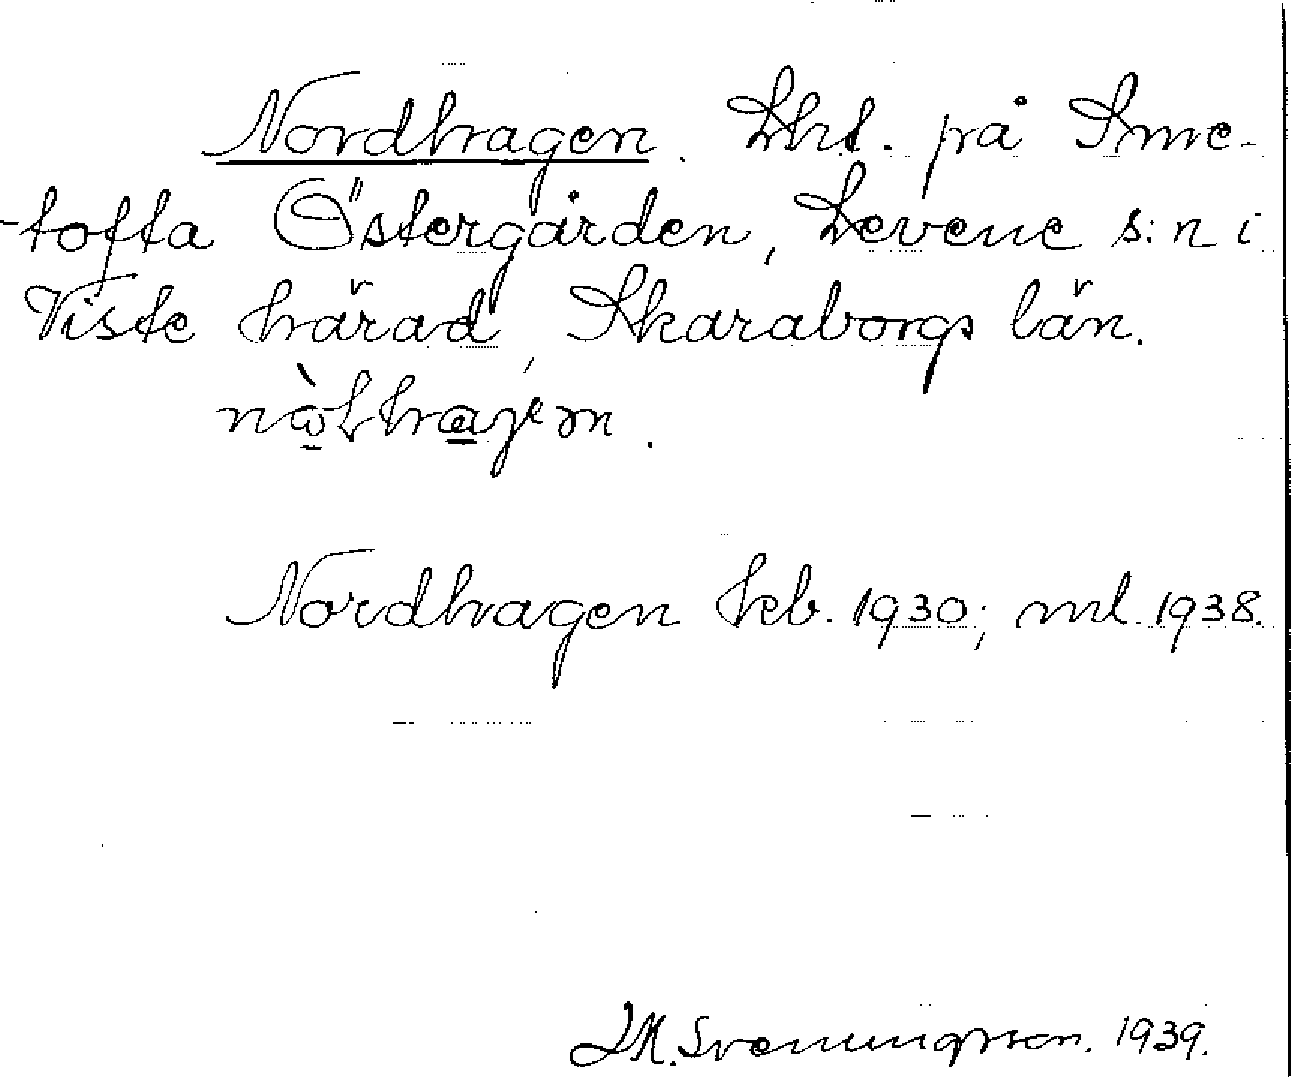 Nordhagen. Lht. på Sme-
-tofta Östergården, Levene s:n i
Viste härad, Skaraborgs län.
Nordhagen Jeb. 1930; ml. 1938.
J.M. Svenningsson. 1939.